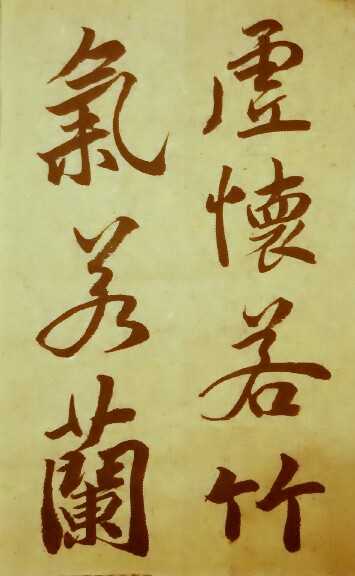 虛懷若竹
氣若蘭